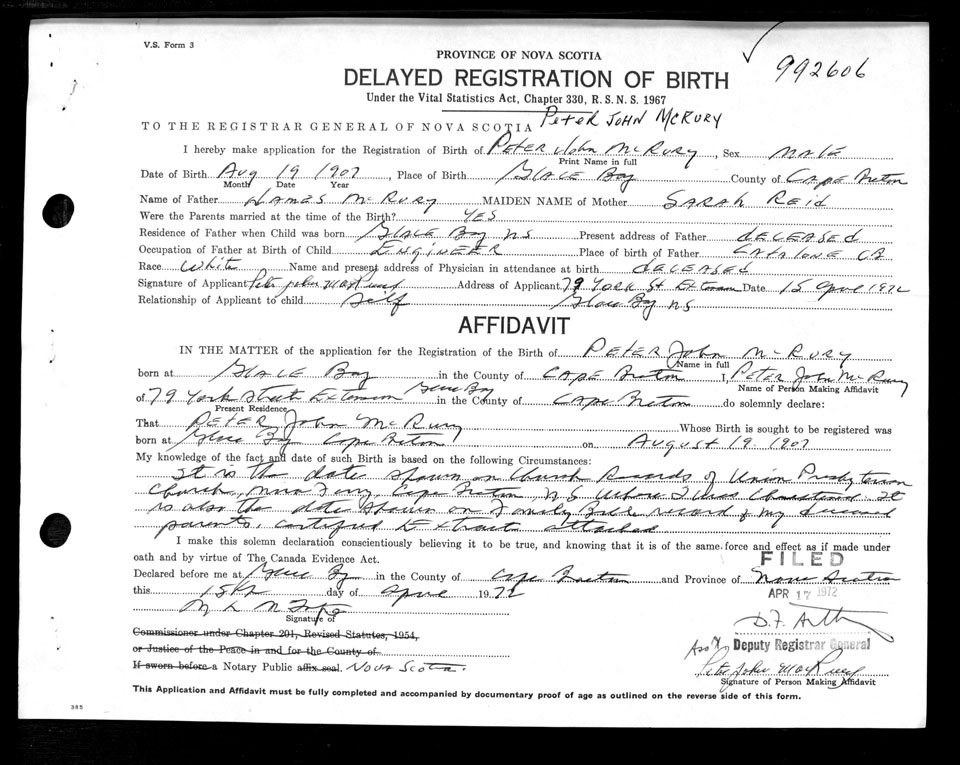 V.S. Form 3
PROVINCE OF NOVA SCOTIA
992606
DELAYED REGISTRATION OF BIRTH
Under the Vital Statistics Act, Chapter 330, R.S.N.S. 1967
Peter John McRury
TO THE REGISTRAR GENERAL OF NOVA SCOTIA
I hereby make application for the Registration of Birth of Peter John McRury, Sex male
Print Name in full
Date of Birth Aug 19 1907, Place of Birth Glace Bay County of Cape Breton
Month Date Year
Name of Father James McRury MAIDEN NAME of Mother Sarah Reid
Were the Parents married at the time of the Birth? Yes
Residence of Father when Child was born Glace Bay NS Present address of Father deceased
Occupation of Father at Birth of Child Engineer Place of birth of Father Catalone CB
Race White Name and present address of Physician in attendance at birth deceased
Signature of Applicant Peter John MacRury Address of Applicant 79 York St Extension Date 15 April 1972
Relationship of Applicant to child Self Glace Bay NS
AFFIDAVIT
IN THE MATTER of the application for the Registration of the Birth of Peter John McRury
Name in full
born at Glace Bay in the County of Cape Breton I, Peter John McRury
Name of Person Making Affidavit
of 79 York Street Extension Glace Bay in the County of Cape Breton do solemnly declare:
Present Residence
That Peter John McRury Whose Birth is sought to be registered was
born at Glace Bay Cape Breton on August 19. 1907
My knowledge of the fact and date of such Birth is based on the following Circumstances:
It is the date shown on Church Records of Union Presbyterian
Church, Mira Ferry, Cape Breton NS where I was Christened. It
is also the date shown on Family Bible record of my deceased
parents. Certified Extract attached
I make this solemn declaration conscientiously believing it to be true, and knowing that it is of the same force and effect as if made under
oath and by virtue of The Canada Evidence Act.
FILED
Declared before me at Glace Bay in the County of Cape Breton and Province of Nova Scotia
this 15th day of April 1972
APR 17 1972
Signature of
D.F.
Commissioner under Chapter 201, Revised Statutes, 1954,
or Justice of the Peace in and for the County of
Deputy Registrar General
If sworn before a Notary Public affix seal. Nova Scotia.
Peter John MacRury
Signature of Person Making Affidavit
This Application and Affidavit must be fully completed and accompanied by documentary proof of age as outlined on the reverse side of this form.
385